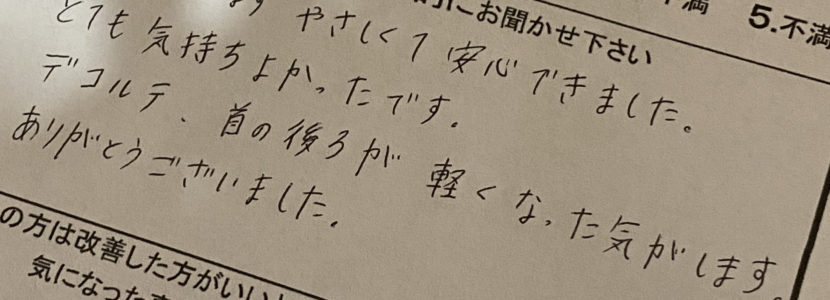 不満 5.不満
にお聞かせ下さい
やさしくて安心できました。
とても気持ちよかったです。
デコルテ、首の後ろが軽くなった気がします。
ありがとうございました。
の方は改善した方がいい
気になった